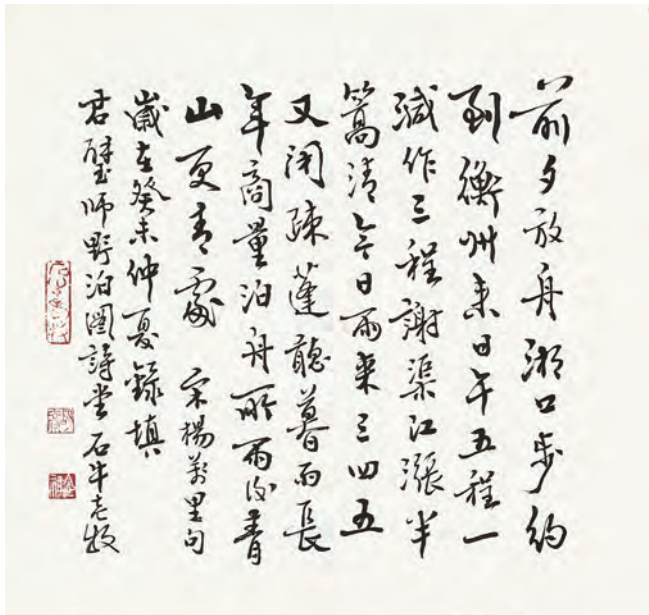 前夕放舟湖口步約
到衡州來日午五程一
減作三程謝渠江漲半
篙清今日雨來三四五
又閉疎蓬聽暮雨長
年商量泊舟所雨後青
山更青處 宋楊萬里句
歲在癸未仲夏錄填
君璧師野泊圖詩堂 石牛老牧